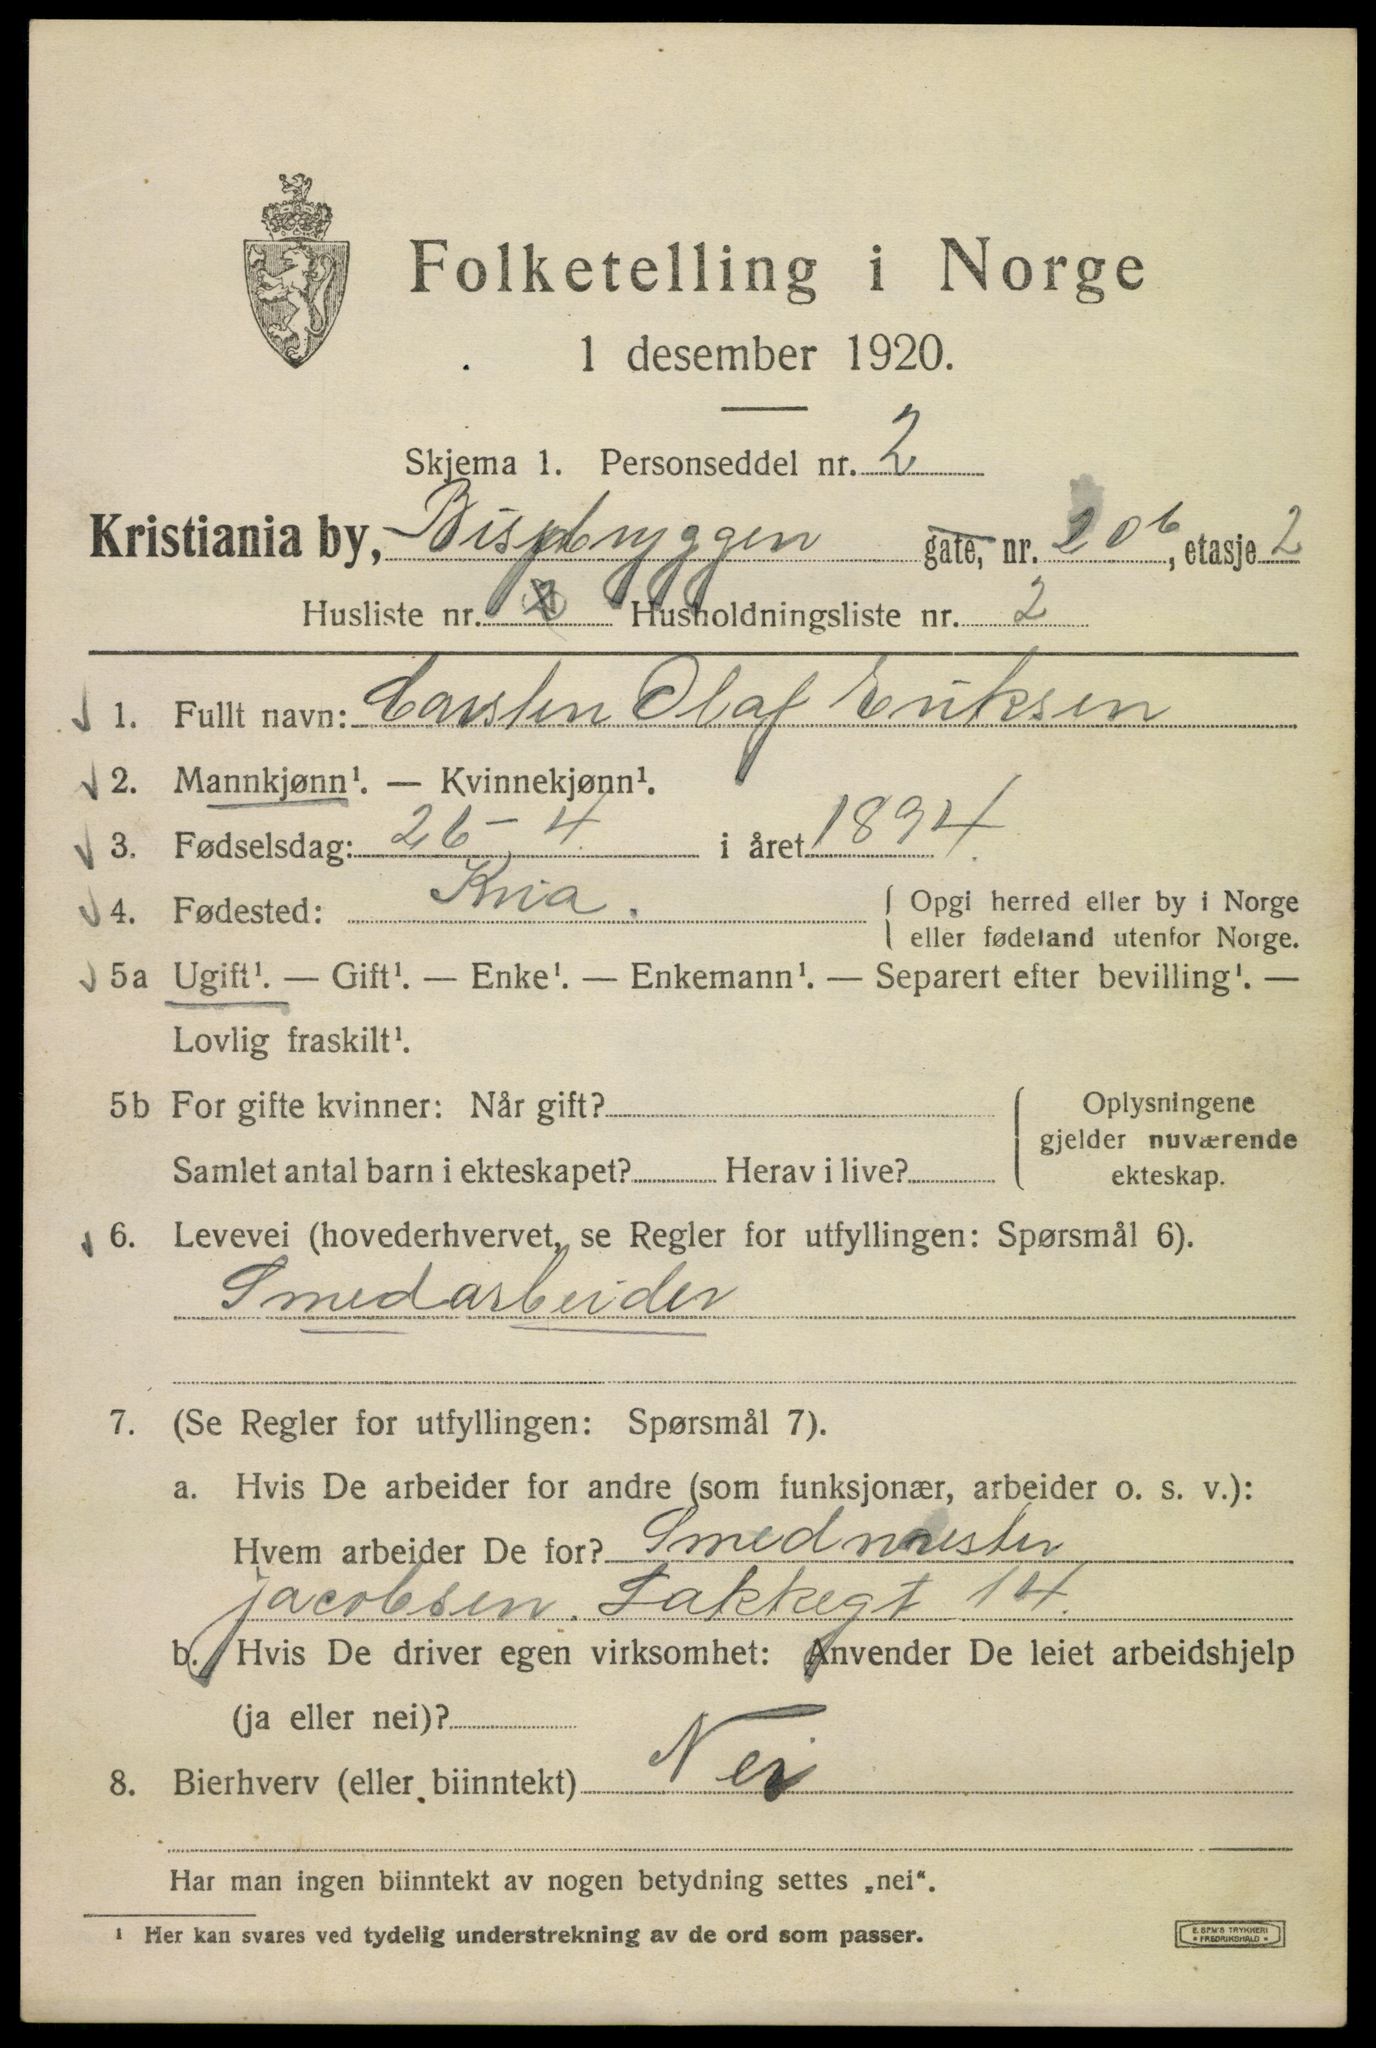 Folketelling i Norge
1 desember 1920.
Skjema 1. Personseddel nr. 2
Kristiania by, Bispbryggen gate, nr. 20b, etasje 2
Husliste nr. Husholdningsliste nr. 2
1. Fullt navn: Carsten Olaf Eriksen
2. Mannkjønn¹. — Kvinnekjønn¹.
3. Fødselsdag: 26 - 4. i året 1894.
4. Fødested: Kria. { Opgi herred eller by i Norge
eller fødeland utenfor Norge.
5a Ugift¹. — Gift¹. — Enke¹. — Enkemann¹. — Separert efter bevilling¹. —
Lovlig fraskilt¹.
5b For gifte kvinner: Når gift? { Oplysningene
gjelder nuværende
Samlet antal barn i ekteskapet? Herav i live? ekteskap.
6. Levevei (hovederhvervet, se Regler for utfyllingen: Spørsmål 6).
Smedarbeider
7. (Se Regler for utfyllingen: Spørsmål 7).
a. Hvis De arbeider for andre (som funksjonær, arbeider o. s. v.):
Hvem arbeider De for? Smedmester
Jacobsen. Lakkegt 14.
b. Hvis De driver egen virksomhet: Anvender De leiet arbeidshjelp
(ja eller nei)?
8. Bierhverv (eller biinntekt) Nei
Har man ingen biinntekt av nogen betydning settes „nei“.
¹ Her kan svares ved tydelig understrekning av de ord som passer.
E. SEM'S TRYKKERI
* FREDRIKSHALD *